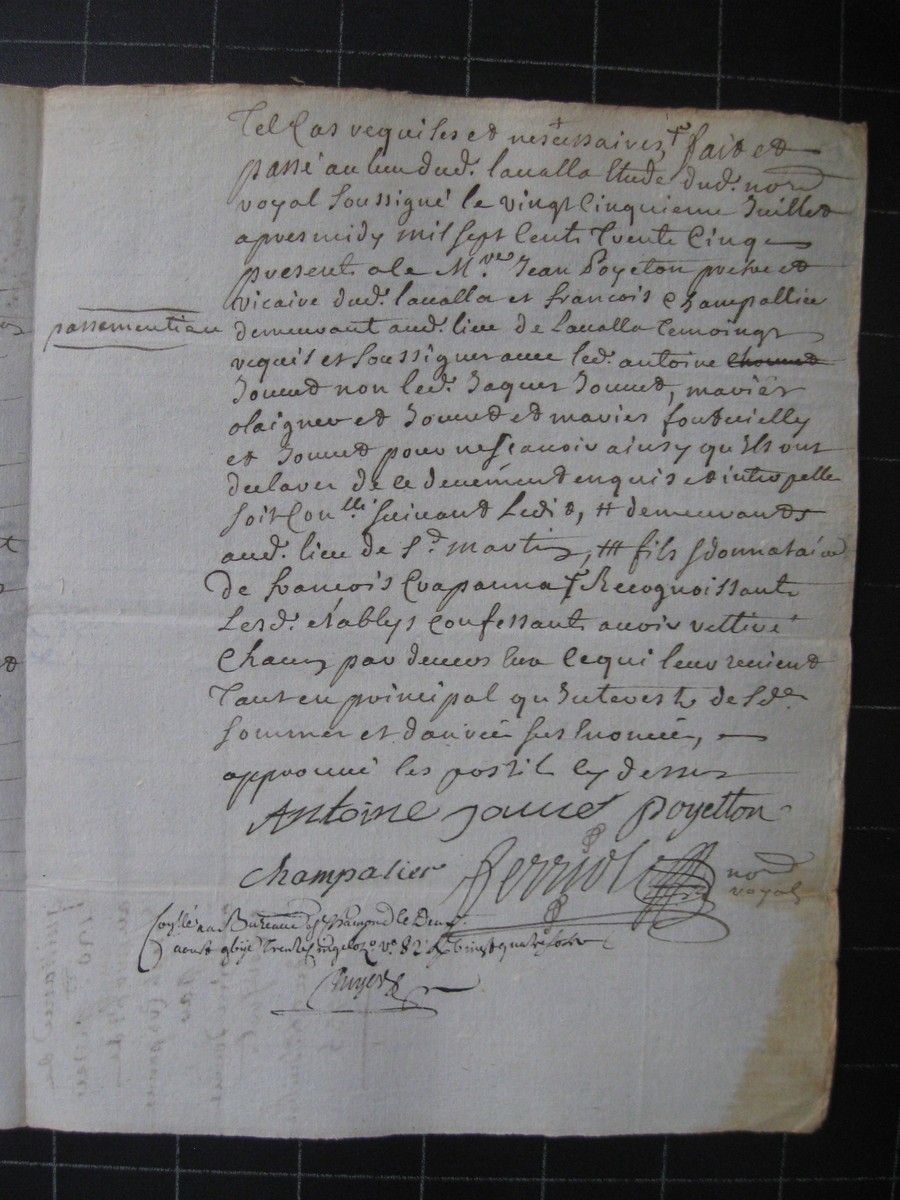 Tel Cas requises et necessaires, fait et
passé au lieu dud. lavalla Etude dud. nore
royal soussigné le vingt Cinquieme Juillet
apres midy mil sept Cent Trente Cinq
presents a le Mre Jean Poyeton pretre et
vicaire dud. lavalla et francois Champallier
passementier
demeurant aud. lieu de Lavalla temoings
requis et soussignes avec led. antoine chouned
Jouned non led. Jaques Jouned, maries
et Jouned et maries
et Jouned pour ne scavoir ainsy qu'ils ont
declarer de ce deuëment enquis et interpelle
soit Con.lle suivand Ledit, # demeurands
aud. lieu de St. martin, ## fils & donnataire
de francois Crapanna † Recognoissants
Lesd. établys Confessants avoir rettiré
Chacun par devers Eux Ce qui leur revient
Tant en principal qu'interest de sd.
sommes et danrée sus Enoncée,
approuvé les postilles cy dessus
Antoine Jouned Poyetton
Champalier Ferriol nore
royal
Conlé au Bureau de St Chamond le Deux
aoust 82 vingt quatre sols